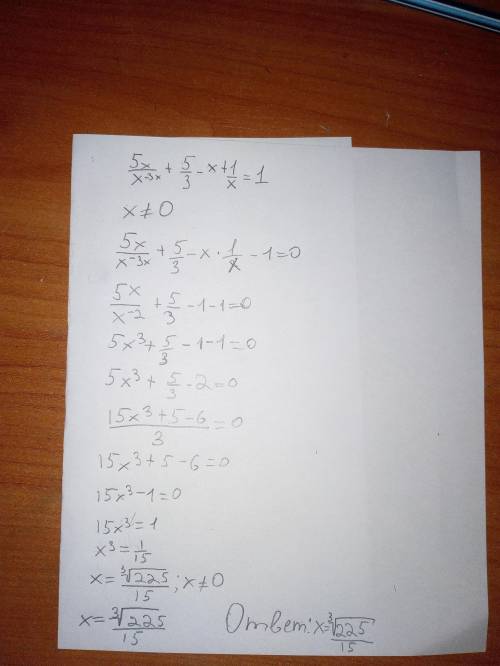 5x/x^-3x + 5/3 - x + 1/x = 1
x ≠ 0
5x/x^-3x + 5/3 - x · 1/x - 1 = 0
5x/x^-2 + 5/3 - 1 - 1 = 0
5x³ + 5/3 - 1 - 1 = 0
5x³ + 5/3 - 2 = 0
(15x³ + 5 - 6)/3 = 0
15x³ + 5 - 6 = 0
15x³ - 1 = 0
15x³ = 1
x³ = 1/15
x = ³√225/15 ; x ≠ 0
x = ³√225/15 Ответ: x = ³√225/15